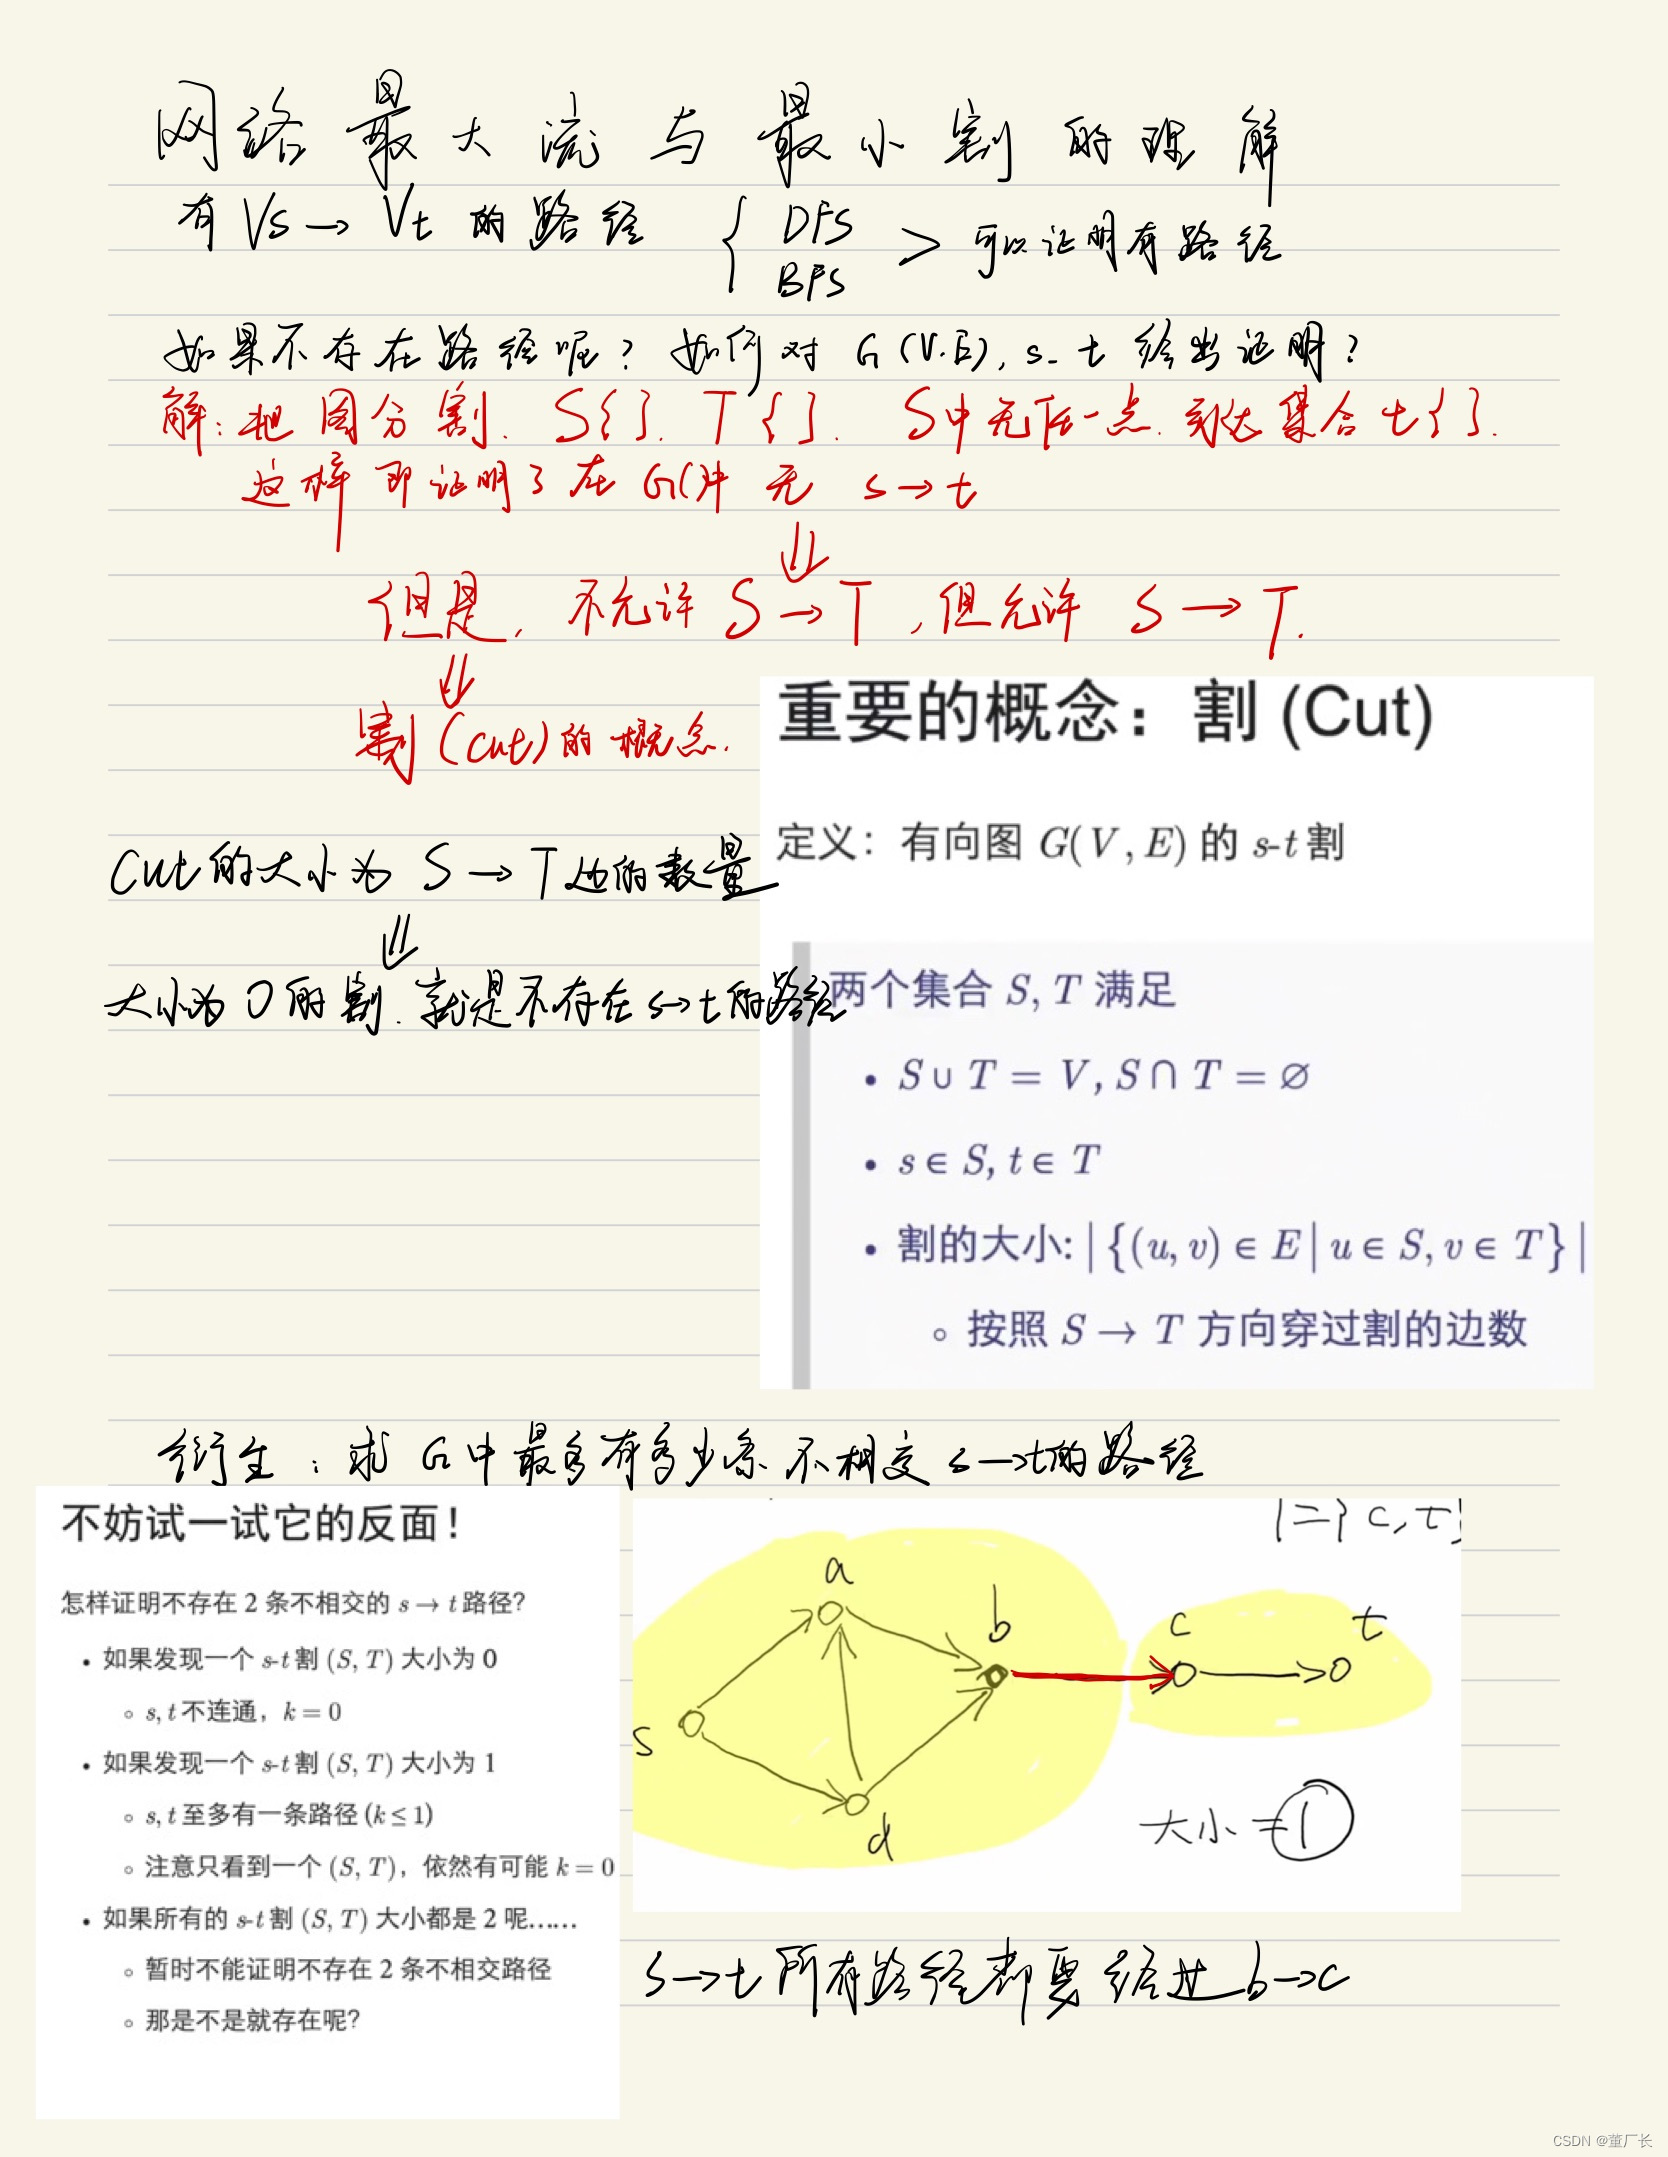 网络最大流与最小割的理解
有 Vs → Vt 的路径 { DFS BFS > 可以证明有路径
如果不存在路径呢? 如何对 G(V.E), s-t 给出证明?
解: 把图分割. S{}. T{}. S中无任一点.到达集合t{}.
这样即证明了在G()中无 s→t
⇓
但是, 不允许 S→T, 但允许 S→T.
⇓
割(cut)的概念.
重要的概念：割 (Cut)
定义：有向图 G(V, E) 的 s-t 割
Cut的大小为 S→T边的数量
⇓
大小为0的割.就是不存在s→t的路径
两个集合 S, T 满足
• S ∪ T = V, S ∩ T = ∅
• s ∈ S, t ∈ T
• 割的大小: | {(u, v) ∈ E | u ∈ S, v ∈ T} |
◦ 按照 S → T 方向穿过割的边数
衍生: 求G中最多有多少条不相交s→t的路径
不妨试一试它的反面！
怎样证明不存在 2 条不相交的 s → t 路径?
• 如果发现一个 s-t 割 (S, T) 大小为 0
◦ s, t 不连通，k = 0
• 如果发现一个 s-t 割 (S, T) 大小为 1
◦ s, t 至多有一条路径 (k ≤ 1)
◦ 注意只看到一个 (S, T)，依然有可能 k = 0
• 如果所有的 s-t 割 (S, T) 大小都是 2 呢……
◦ 暂时不能证明不存在 2 条不相交路径
◦ 那是不是就存在呢?
c, t
a
b
c
t
s
d
大小=1
s→t所有路径都要经过b→c
CSDN @董厂长